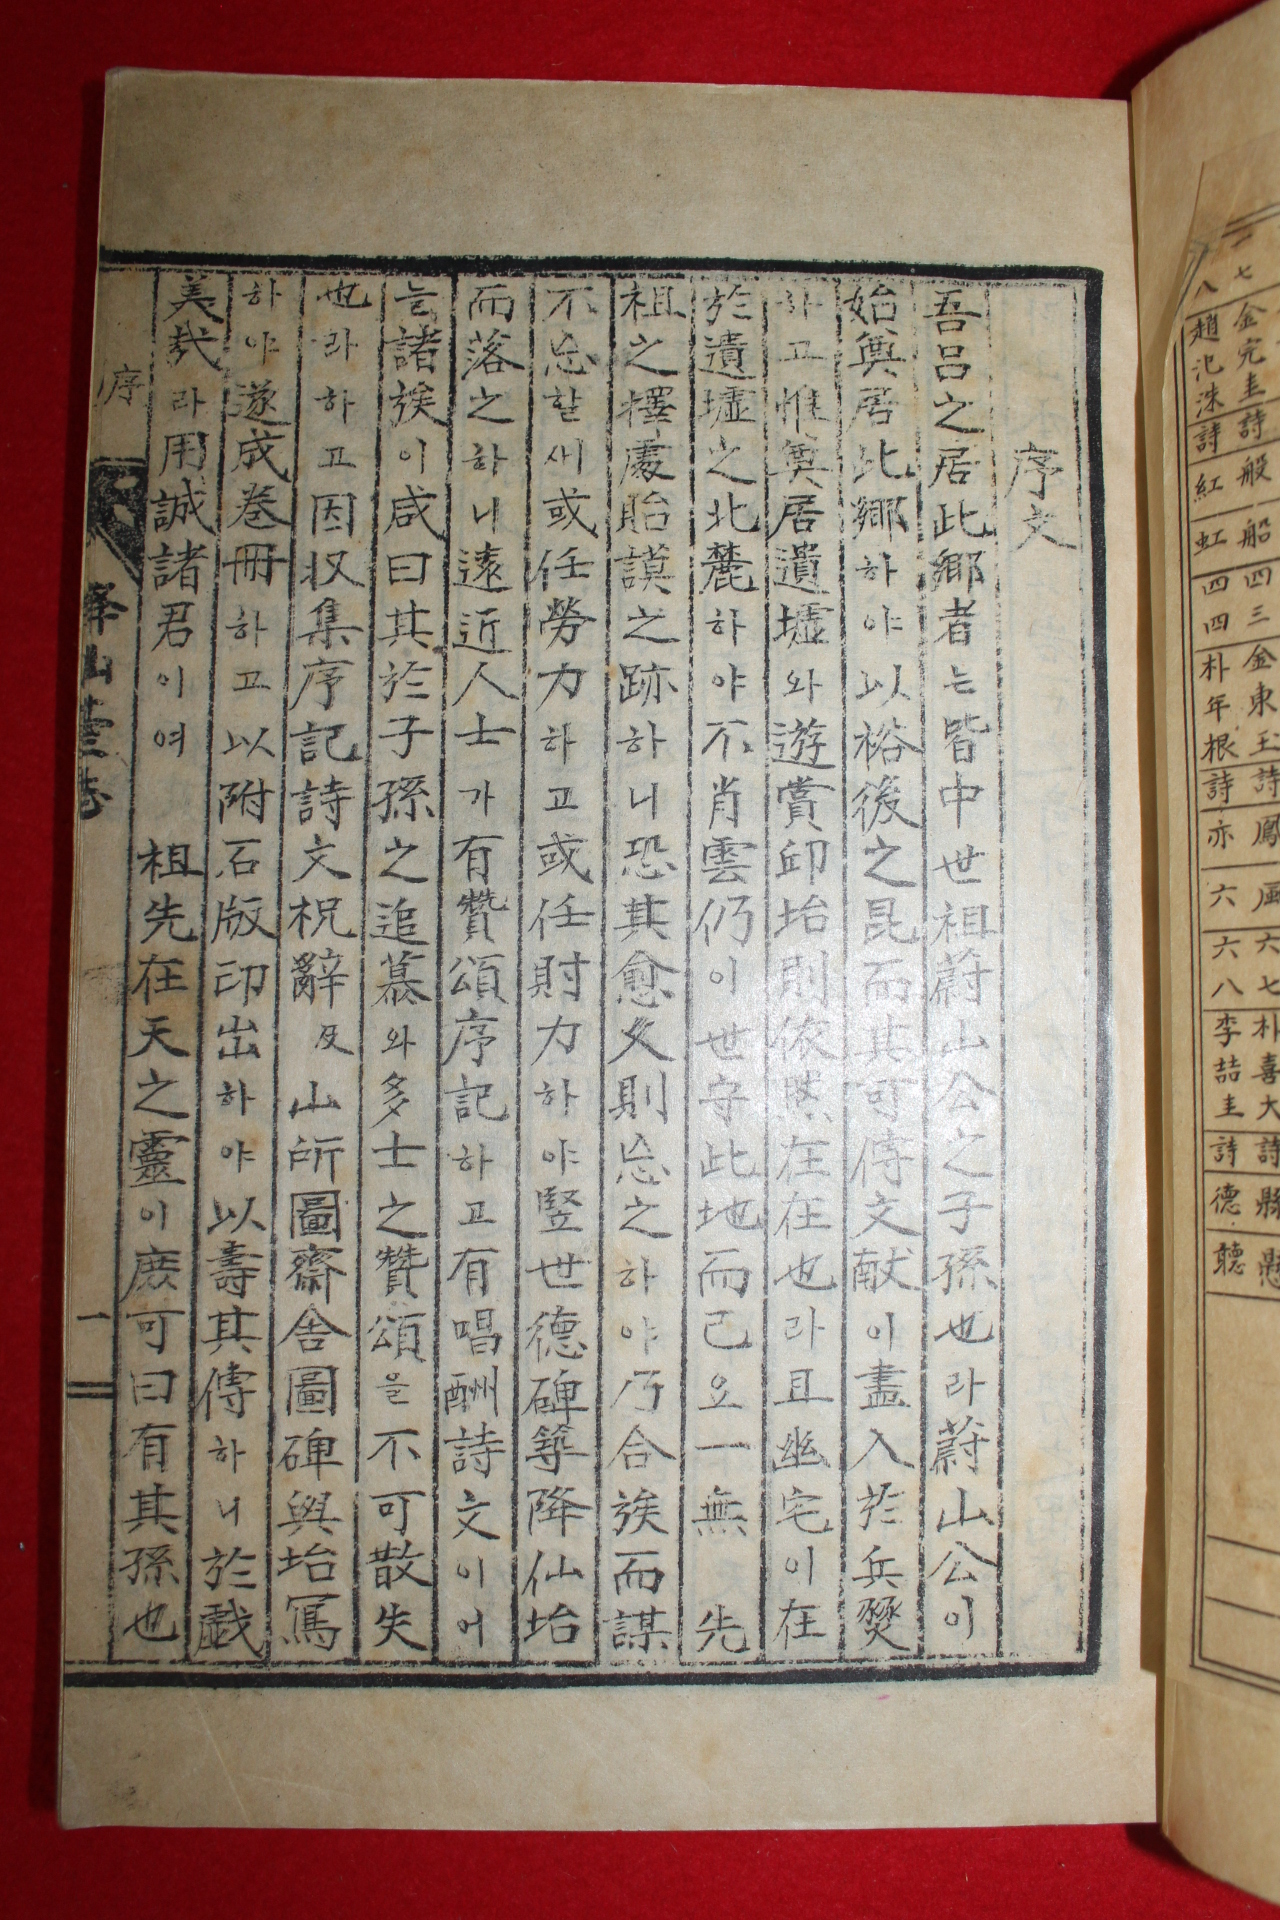 序文
吾呂之居此鄕者는皆中世祖蔚山公之子孫也라蔚山公이
始奠居此鄕하야以裕後之昆而其可傳文献이盡入於兵燹
하고惟奠居遺墟와遊賞邱坮則依然在在也라且幽宅이在
於遺墟之北麓하야不肖雲仍이世守此地而已요一無 先
祖之擇處貽謨之跡하니恐其愈久則忘之하야乃合族而謀
不忘할새或任勞力하고或任財力하야竪世德碑等降仙坮
而落之하니遠近人士가有贊頌序記하고有唱酬詩文이어
늘諸族이咸曰其於子孫之追慕와多士之贊頌을不可散失
也라하고因収集序記詩文祝辭及山所圖齋舍圖碑與坮寫
하야遂成卷冊하고以附石版印出하야以壽其傳하니於戱
美哉라用誠諸君이여 祖先在天之靈이庶可曰有其孫也
序
一
七 金完圭詩 般 船 四三 金東玉詩 鳳 凮 六七 朴喜大詩 縣
八 趙氾洙詩 紅 虹 四四 朴年根詩 亦 六 六八 李喆圭詩 德 聽